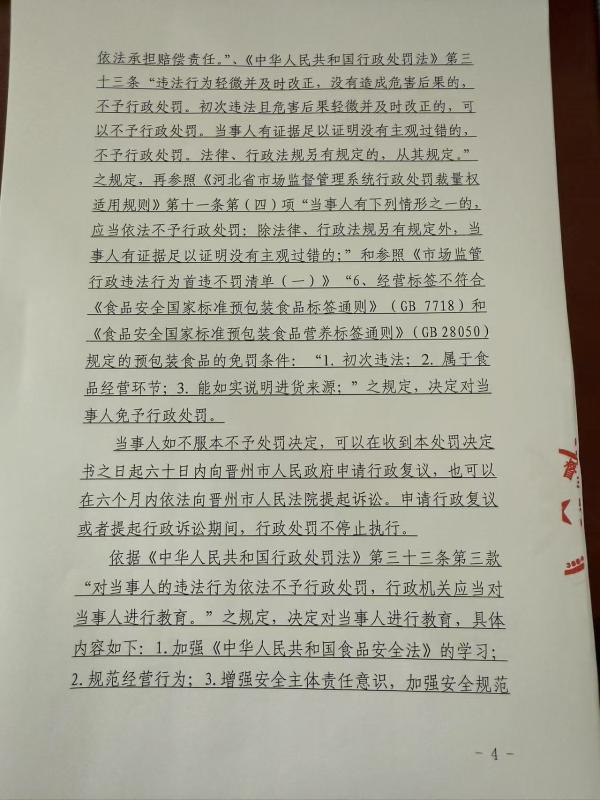 依法承担赔偿责任。”、《中华人民共和国行政处罚法》第三
十三条“违法行为轻微并及时改正，没有造成危害后果的，
不予行政处罚。初次违法且危害后果轻微并及时改正的，可
以不予行政处罚。当事人有证据足以证明没有主观过错的，
不予行政处罚。法律、行政法规另有规定的，从其规定。”
之规定，再参照《河北省市场监督管理系统行政处罚裁量权
适用规则》第十一条第（四）项“当事人有下列情形之一的，
应当依法不予行政处罚：除法律、行政法规另有规定外，当
事人有证据足以证明没有主观过错的；”和参照《市场监管
行政违法行为首违不罚清单（一）》“6、经营标签不符合
《食品安全国家标准预包装食品标签通则》（GB 7718）和
《食品安全国家标准预包装食品营养标签通则》（GB 28050）
规定的预包装食品的免罚条件：“1. 初次违法；2. 属于食
品经营环节；3. 能如实说明进货来源；”之规定，决定对当
事人免予行政处罚。
当事人如不服本不予处罚决定，可以在收到本处罚决定
书之日起六十日内向晋州市人民政府申请行政复议，也可以
在六个月内依法向晋州市人民法院提起诉讼。申请行政复议
或者提起行政诉讼期间，行政处罚不停止执行。
依据《中华人民共和国行政处罚法》第三十三条第三款
“对当事人的违法行为依法不予行政处罚，行政机关应当对
当事人进行教育。”之规定，决定对当事人进行教育，具体
内容如下：1.加强《中华人民共和国食品安全法》的学习；
2.规范经营行为；3.增强安全主体责任意识，加强安全规范
督
- 4 -